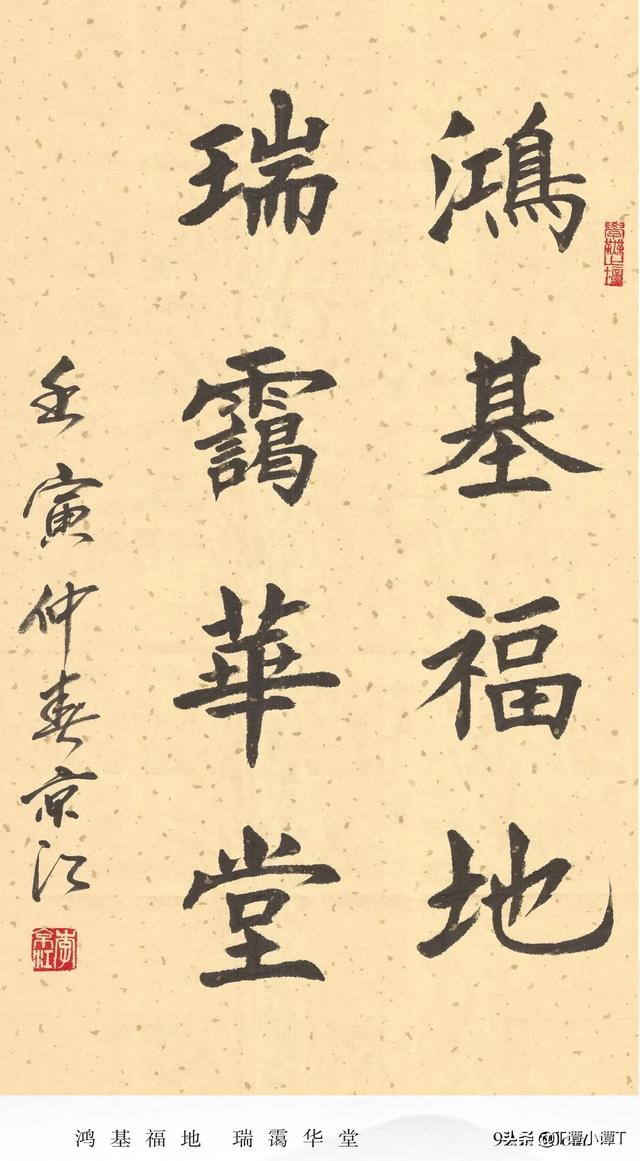 鴻基福地
瑞靄華堂
壬寅仲春京江
李京江
鸿基福地 瑞霭华堂
头条 @T谭小谭T